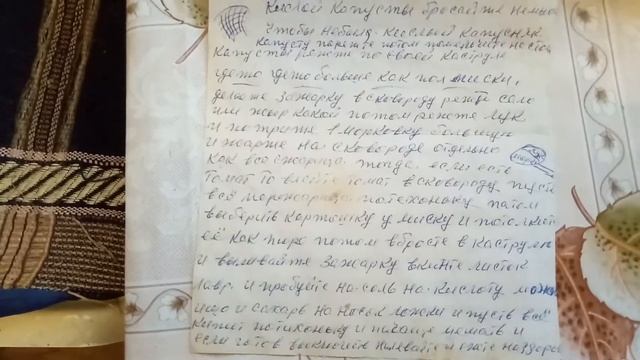 Кислой капусты бросайте немного
чтобы небыло кислый капусняк
капусту парежте потом
капусты режте по своей каструле
где то где то больше как пол миски,
делаете зажарку в сковороду режте сало
или жир какой потом режте лук
и потрите морковку большую
и жарте на сковороде отдельно
как всё жарица тогда если есть
томат то влейте томат в сковороду пусть
всё пережарица потехоньку патом
выберить картошку у миску и потолкить
её как пюре потом вбросте в каструлю
и выливайте зажарку вкинте листок
лавр. и пробуйте на-соль на-кислоту
ищо и сахарь на ложки и пусть всё
кипит потихоньку и
если готов выключить наливайте и ежте на здоров